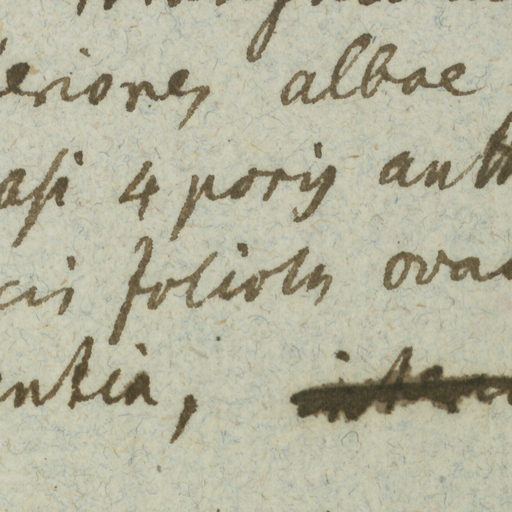 eriores albae
asi 4 poris anth
cis foliolis ova
entia,